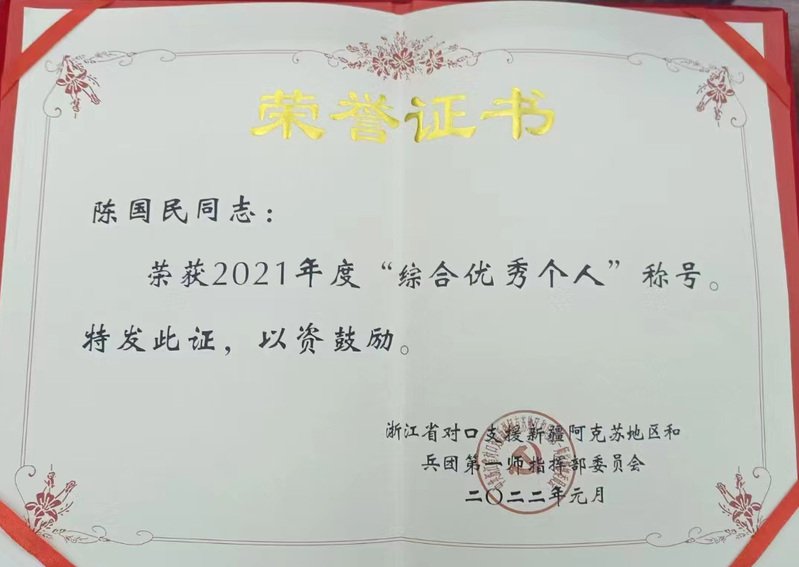 荣誉证书
陈国民同志：
荣获2021年度“综合优秀个人”称号。
特发此证，以资鼓励。
浙江省对口支援新疆阿克苏地区和
兵团第一师指挥部委员会
二〇二二年元月